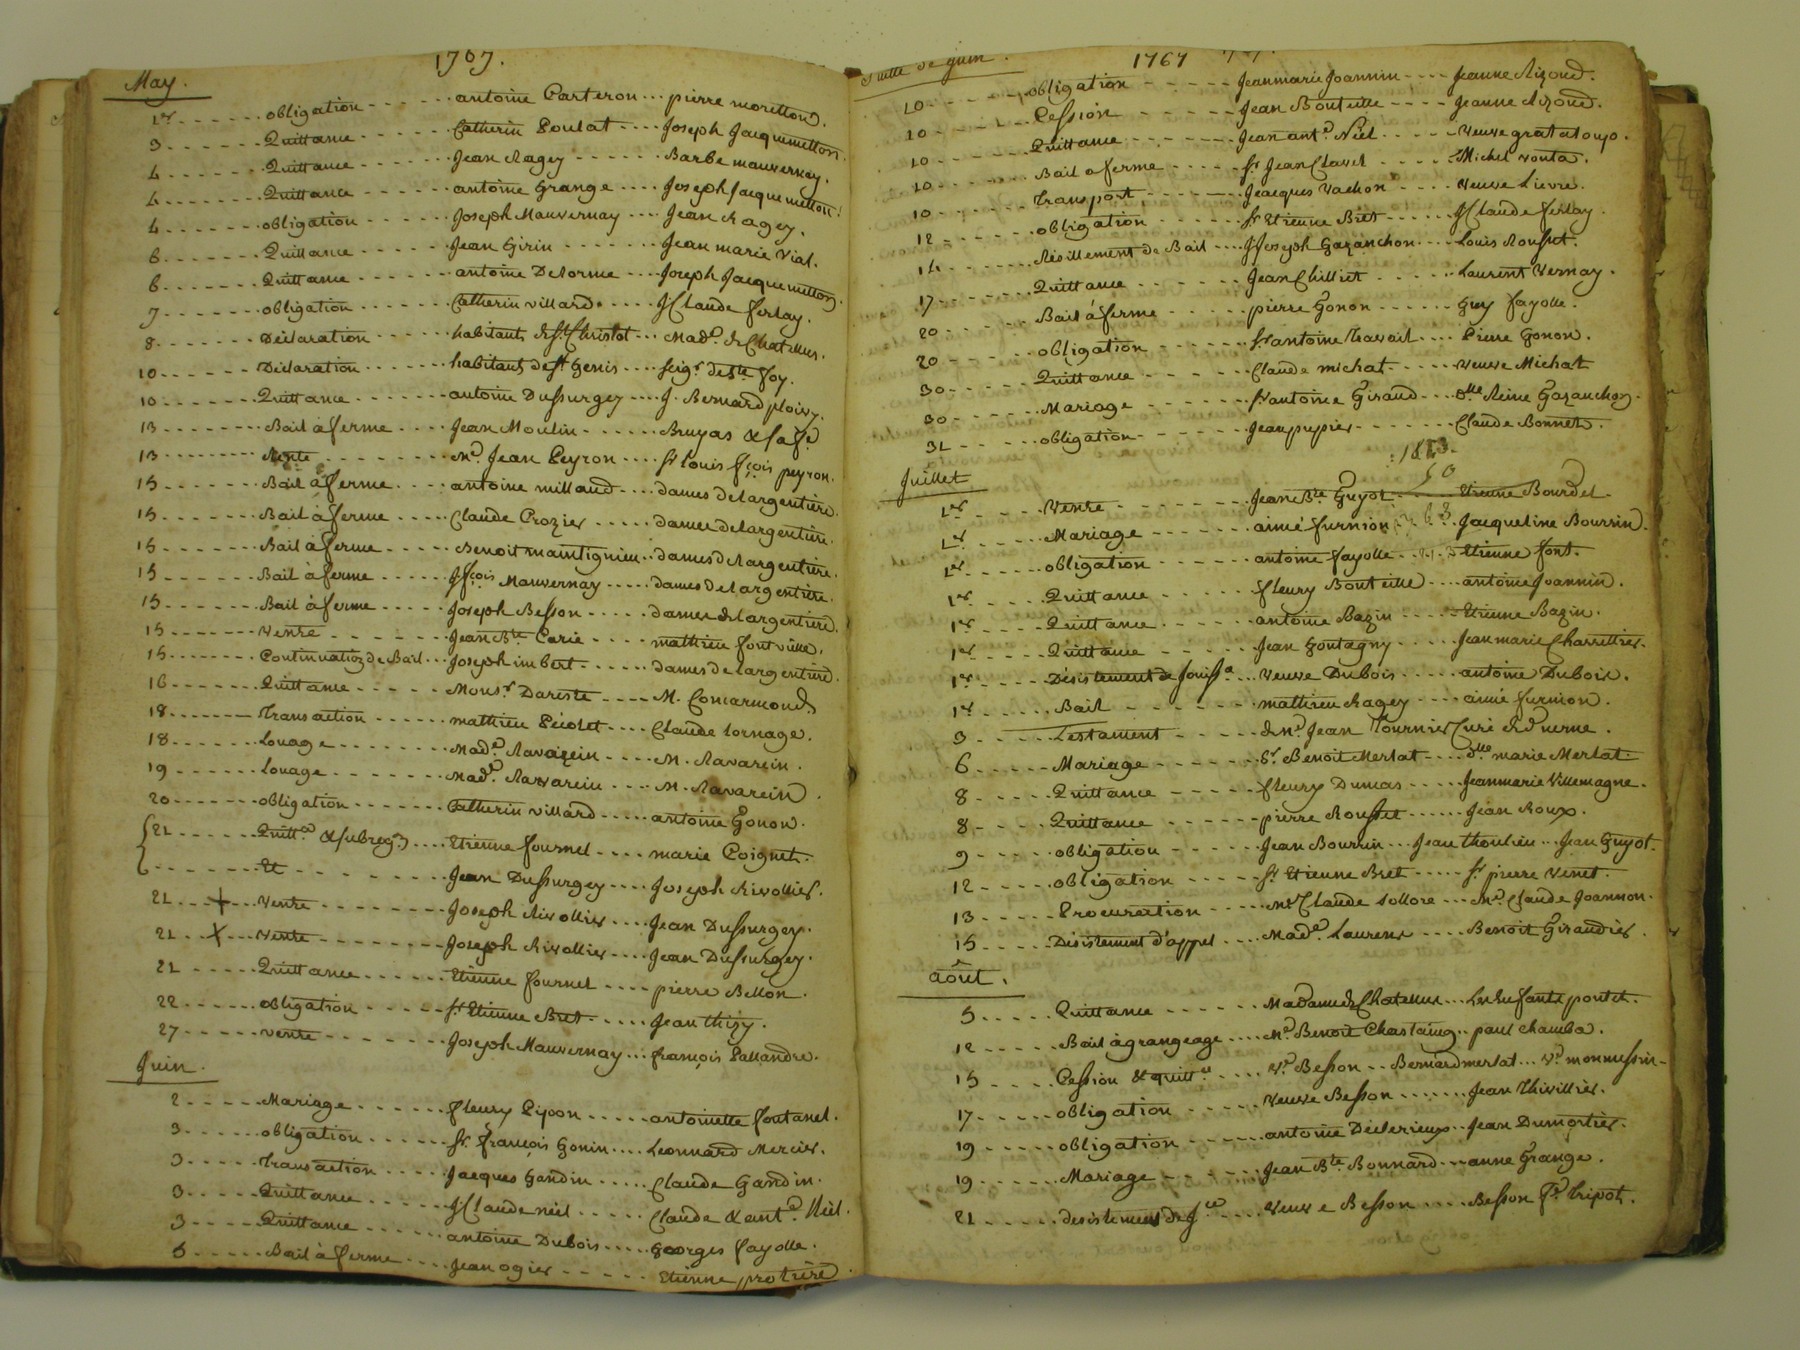 1767.
May.
1er obligation antoine Carteron pierre moretton.
3 Quittance Catherin Poulat Joseph Jacquemetton.
4 Quittance Jean Ragey Barbe mauvernay.
4 Quittance antoine Grange Joseph Jacquemetton.
4 obligation Joseph Mauvernay Jean Ragey.
6 Quittance Jean Girin Jean marie Vial.
6 Quittance antoine Delorme Joseph Jacquemetton.
7 obligation Catherin villard JClaude ferlay.
8 Déclaration habitants de St Christot Made. de Chatellus.
10 Déclaration habitants de St Genis seigr. de ste foy.
10 Quittance antoine Dussurgey J. Bernard ploivy.
13 Bail à ferme Jean Moulin Bruyas & sa fe
13 Vente Me. Jean Peyron sr Louis fçois peyron.
15 Bail à ferme antoine millaud dames de largentière.
15 Bail à ferme Claude Crozier dames de largentière.
15 Bail à ferme Benoit maintignieu dames de largentière.
15 Bail à ferme Jfçois Mauvernay dames de largentière.
15 Bail à ferme Joseph Besson dames de largentière.
15 Vente Jean Bte Carie mathieu fontvielle.
15 Continuation de Bail Joseph imbert dames de largentière.
16 Quittance Monsr Dareste M. Comarmond
18 Transaction mathieu Péoler Claude Lornage.
18 Louage Made. Ravarein M. Ravarein.
19 Louage Made. Ravarein M. Ravarein.
20 obligation Catherin villard antoine Gonon.
21 Quitt.ce & subrog.on Etienne fournel marie Coignet.
Et Jean Dussurgey Joseph Rivollier.
21 + Vente Joseph Rivollier Jean Dussurgey.
21 X Vente Joseph Rivollier Jean Dussurgey.
21 Quittance Etienne fournel pierre Bellon.
22 obligation sr. Etienne Bret Jean thizy.
27 Vente Joseph Mauvernay françois Pallandre.
Juin.
2 Mariage fleury Pipon antoinette fontanel.
3 obligation sr. françois Gonin Leonnard Mercier.
3 Transaction Jacques Gandin Claude Gandin.
3 Quittance JClaude néel Claude & ante. Néel.
3 Quittance antoine Dubois Georges fayolle.
6 Bail à ferme Jean ogier Etienne protière
Suitte de juin. 1767
10 obligation Jeanmarie Joannin Jeanne Rizoud.
10 Cession Jean Bouteille Jeanne Rizoud.
10 Quittance Jean ante. Néel Veuve grataloup.
10 Bail a ferme sr Jean Clavel Michel vonta.
10 Transport Jacques Vachon Veuve Lievre.
12 obligation sr Etienne Bret JClaude ferlay.
14 Résillement de Bail JJoseph Gazanchon Louis Rousset.
17 Quittance Jean Chilliet Laurent Vernay.
20 Bail à ferme pierre Gonon Guy fayolle.
20 obligation sr antoine thavail Pierre Gonon.
30 Quittance Claude michat veuve Michat
30 Mariage sr antoine Giraud dlle Reine Gazanchon.
31 obligation Jean pupier Claude Bonnet.
Juillet
1er Vente Jean Bte Guyot Etienne Bourdel.
1er Mariage aimé furnion Jacqueline Boursin.
1er obligation antoine fayolle Etienne font.
1er Quittance fleury Bouteille antoine Joannin.
1er Quittance antoine Bazin Etienne Bazin.
1er Quittance Jean Goutagny Jean marie Charretier.
1er Désistement de Jouissa. Veuve Dubois antoine Dubois.
1er Bail mathieu Ragey aimé furnion.
3 Testament de Me Jean Tournier Curé de duerne.
6 Mariage sr. Benoit Merlat dlle marie Merlat.
8 Quittance fleury Dumas Jeanmarie Villemagne.
8 Quittance pierre Rousset Jean Roux.
9 obligation Jean Boursin Jean thoulieu Jean Guyot.
12 obligation sr Etienne Bret sr pierre Venet.
13 Procuration Me Claude Lollore Me. Claude Joannon.
15 Désistement d'appel Made. Laurens Benoit Giraudier.
aôut.
5 Quittance Madame de Chatellus Les Enfants pontet.
12 Bail à grangeage Me Benoit Chastaing paul chamba.
15 Cession & quitt.ce Ve. Besson Bernard merlat Ve. monmessin
17 obligation Veuve Besson Jean Thivillier.
19 obligation antoine Déclerieux Jean Dumortier.
19 Mariage Jean Bte. Bonnard anne Grange.
21 desistement de Jce Veuve Besson Besson fe. tripot.